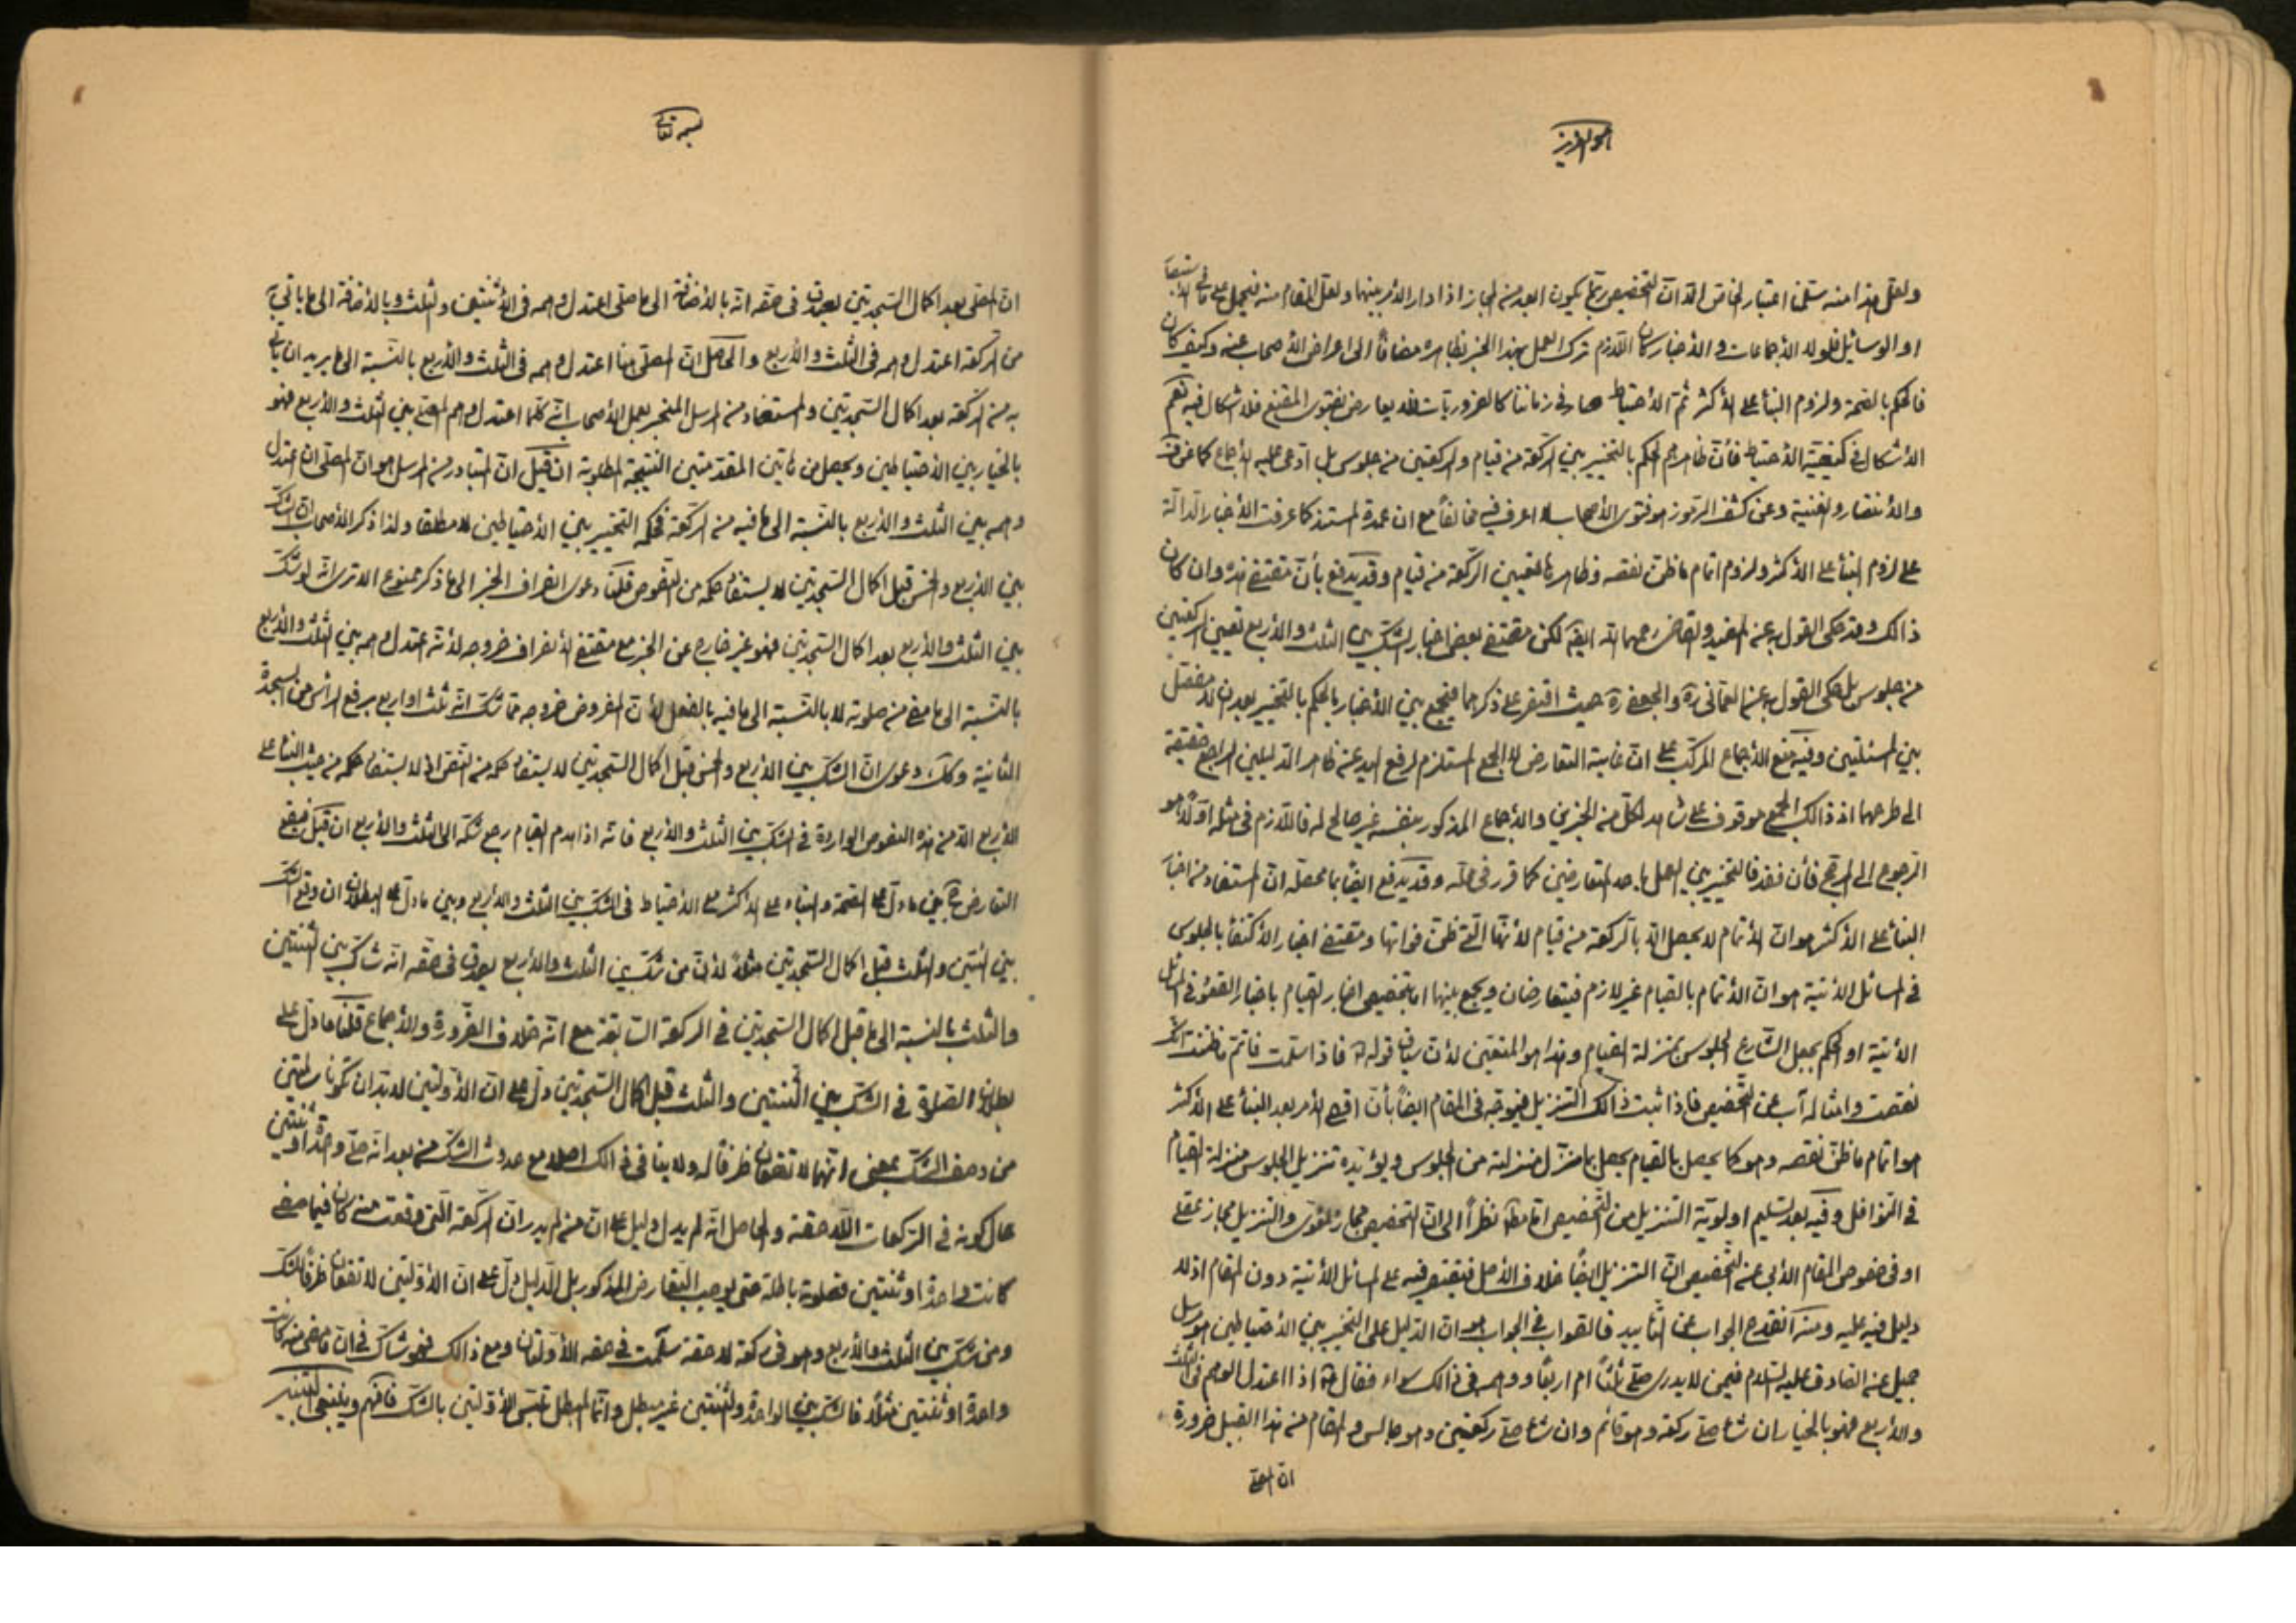 هو العزيز
ولعل هذا منه سلمنا اعتبار الخاص الا ان التخصيص ربما يكون ابعد من المجاز اذا دار الأمر بينهما ولعل المقام منه فيحمل على
او الوسائل فلولا الأجماعات والأخبار كان اللازم ترك العمل بهذا الخبر بظاهره مضافاً الى اعراض الأصحاب عنه وكيف كان
فالحكم بالصحة ولزوم البنأ على الأكثر ثم الأحتياط صار في زماننا كالضروريات فلا يعارض بفتوى المقنع فلا اشكال فيه نعم
الأشكال في كيفية الأحتياط فأن ظاهرهم الحكم بالتخيير بين الركعة من قيام والركعتين من جلوس بل ادعى عليه الأجماع كما عن
والأنتصار والغنية وعن كشف الرموز هو فتوى الأصحاب لا اعرف فيه مخالفاً مع ان عمدة المستند كما عرفت الأخبار الدالة
على لزوم البنأ على الأكثر ولزوم اتمام ما ظن نقصه وظاهرها تعيين الركعة من قيام وقد يدفع بأن مقتضى هذه وان كان
ذالك وقد حكى القول به عن المفيد والقاضى رحمهما الله ايضا لكن مقتضى بعض اخبار الشك بين الثلث والأربع تعيين الركعتين
من جلوس بل حكى القول به عن العمانى ره والجعفى ره حيث اقتصرا على ذكرهما فيجمع بين الأخبار بالحكم بالتخيير بعد ان لا مفصل
بين المسئلتين وفيه منع للأجماع المركب على ان غاية التعارض لا الجمع المستلزم لرفع اليد عن ظاهر الدليلين الراجع حقيقة
الى طرحهما اذ ذالك الجمع موقوف على شاهد لكل من الخبرين والأجماع المذكور بنفسه غير صالح له فاللازم فى مثله اولاً هو
الرجوع الى المرجح فأن فقد فالتخيير بين العمل بأحد المتعارضين كما قرر في محله وقد يدفع ايضاً بما محصله ان المستفاد من اخبار
البنأ على الأكثر هو ان الأتمام لا يحصل الا بالركعة من قيام لأنها التي ظن فواتها ومقتضى اخبار الأكتفأ بالجلوس
في المسائل الأتية هو ان الأتمام بالقيام غير لازم فيتعارضان ويجمع بينهما اما بتخصيص اخبار القيام باخبار القعود في المسائل
الأتية او الحكم بجعل الشارع الجلوس بمنزلة القيام وهذا هو المتعين لأن سياق قوله فاذا سلمت فاتم ما ظننت انك
نقصت وامثاله آب عن التخصيص فاذا ثبت ذالك التنزيل فيوجه فى المقام ايضاً بأن اقصى الأمر بعد البنأ على الأكثر
هو اتمام ما ظن نقصه وهو كما يحصل بالقيام يحصل بما هو منزل منزلته من الجلوس ويؤيده تنزيل الجلوس منزلة القيام
فى النوافل وفيه بعد تسليم اولوية التنزيل من التخصيص اما مطلقا نظراً الى ان التخصيص مجاز لغوى والتنزيل مجاز عقلى
او فى خصوص المقام الأبى عن التخصيص ان التنزيل ايضاً خلاف الأصل فيقتصر فيه على المسائل الأتية دون المقام اذ لا
دليل فيه عليه ومنه انقدح الجواب عن التأييد فالصواب في الجواب هو ان الدليل على التخيير بين الأحتياطين مرسل
جميل عن الصادق عليه السلام فيمن لا يدرى صلى ثلثاً ام اربعاً ووهمه فى ذالك سواء فقال اذا اعتدل الوهم فى الثلث
والأربع فهو بالخيار ان شاء صلى ركعة وهو قائم وان شاء صلى ركعتين وهو جالس والمقام من هذا القبيل ضرورة
ان المصلى
بسمه تعالى
ان المصلى بعد اكمال السجدتين يصدق فى حقه انه بالأضافة الى ما صلى اعتدل وهمه فى الأثنتين والثلث وبالأضافة الى ما يأتى به
من الركعة اعتدل وهمه فى الثلث والأربع والحاصل ان المصلى هنا اعتدل وهمه فى الثلث والأربع بالنسبة الى ما يريد ان يأتى
به من الركعة بعد اكمال السجدتين والمستفاد من المرسل المنجبر بعمل الأصحاب انه كلما اعتدل وهم المصلى بين الثلث والأربع فهو
بالخيار بين الأحتياطين ويحصل من هاتين المقدمتين النتيجة المطلوبة ان قيل ان المتبادر من المرسل هو ان المصلى ان اعتدل
وهمه بين الثلث والأربع بالنسبة الى ما فيه من الركعة فحكمه التخيير بين الأحتياطين لا مطلقا ولذا ذكر الأصحاب ان الشك
بين الأربع والخمس قبل اكمال السجدتين لا يستفاد حكمه من النصوص قلنا دعوى انصراف الخبر الى ما ذكر ممنوع الا ترى انه لو شك
بين الثلث والأربع بعد اكمال السجدتين فهو غير خارج عن الخبر مع مقتضى الأنصراف خروجه لأنه اعتدل وهمه بين الثلث والأربع
بالنسبة الى ما مضى من صلوته لا بالنسبة الى ما فيه بالفعل لأن المفروض خروجه مما شك انه ثلث او اربع برفع الرأس من السجدة
الثانية وكك دعوى ان الشك بين الأربع والخمس قبل اكمال السجدتين لا يستفاد حكمه من النص اذ لا يستفاد حكمه من حيث البنأ على
الأربع الا من هذه النصوص الواردة في الشك بين الثلث والأربع فانه اذا هدم القيام رجع شكه الى الثلث والأربع ان قيل فيقع
التعارض ح بين ما دل على الصحة والبناء على الأكثر مع الأحتياط فى الشك بين الثلث والأربع وبين ما دل على البطلان ان وقع الشك
بين اثنتين والثلث قبل اكمال السجدتين مثلاً لأن من شك بين الثلث والأربع يصدق فى حقه انه شاك بين اثنتين
والثلث بالنسبة الى ما قبل اكمال السجدتين في الركعة السابقة مع انه خلاف الضرورة والأجماع قلنا ما دل على
بطلان الصلوة في الشك بين اثنتين والثلث قبل اكمال السجدتين دل على ان الأولتين لابد ان تكونا سالمتين
من وصف الشك بمعنى انهما لا تقعان ظرفاً له ولا ينافى ذالك اصلا مع حدوث الشك من بعد انه صلى واحدة او ثنتين
حال كونه في الركعات اللاحقة والحاصل انه لم يدل دليل على ان من لم يدر ان الركعة التى وقعت منه كان فيما مضى
كانت واحدة او ثنتين فصلوته باطلة حتى يوجب التعارض المذكور بل الدليل دل على ان الأولتين لا تقعان ظرفا للشك
ومن شك بين الثلث والأربع وهو فى ركعة لاحقة سلمت في حقه الأولتان ومع ذالك فهو شاك في ان ما مضى منه كانت
واحدة او ثنتين مثلاً فالشك بين الواحدة والثنتين غير مبطل وانما المبطل تلبس الأولتين بالشك فافهم وينبغى التنبيه